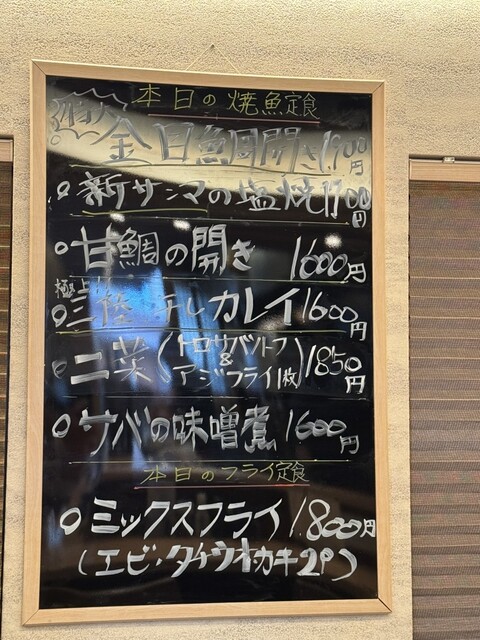 本日の焼魚定食
金目鯛開き1,900円
新サンマの塩焼1,100円
甘鯛の開き 1,600円
極上!
三陸 干しカレイ1,600円
二菜(トロサバソトフ&アジフライ1枚)1,850円
サバの味噌煮1,600円
本日のフライ定食
ミックスフライ1,800円
(エビ・タチウオ・カキ2P)